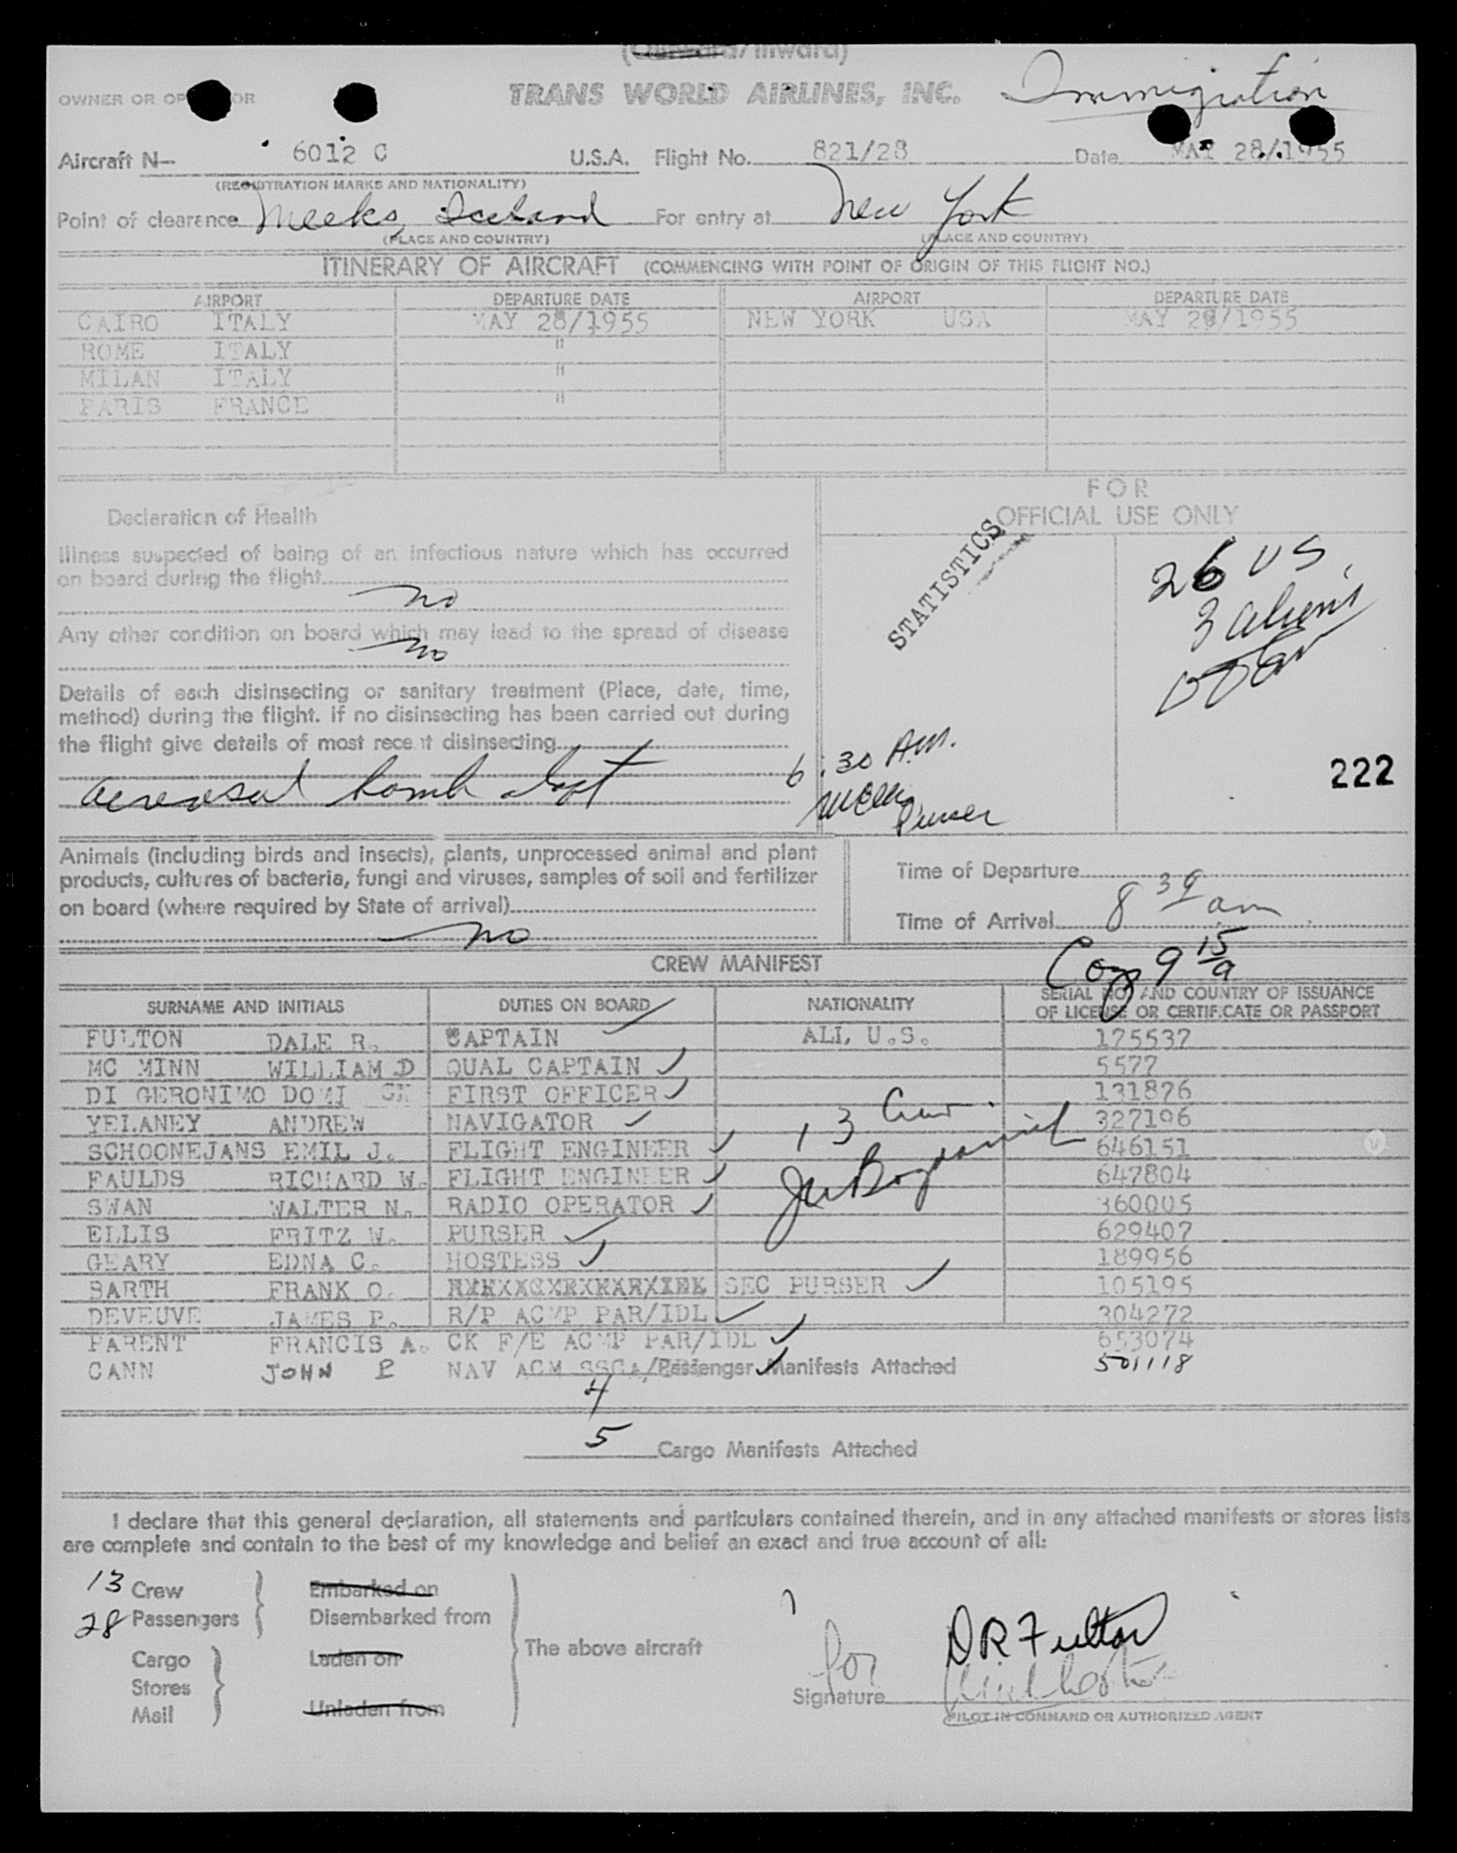 (Outward/Inward)
OWNER OR OP OR TRANS WORLD AIRLINES, INC. Immigration
Aircraft N- 6012 C U.S.A. Flight No. 821/28 Date MAY 28/1955
(REGISTRATION MARKS AND NATIONALITY)
Point of clearence Meeks, Iceland For entry at New York
(PLACE AND COUNTRY) (PLACE AND COUNTRY)
ITINERARY OF AIRCRAFT (COMMENCING WITH POINT OF ORIGIN OF THIS FLIGHT NO.)
AIRPORT DEPARTURE DATE AIRPORT DEPARTURE DATE
CAIRO ITALY MAY 28/1955 NEW YORK USA MAY 28/1955
ROME ITALY "
MILAN ITALY "
PARIS FRANCE "
FOR
OFFICIAL USE ONLY
Declaration of Health
Illness suspected of being of an infectious nature which has occurred
on board during the flight
no
Any other condition on board which may lead to the spread of disease
no
Details of each disinsecting or sanitary treatment (Place, date, time,
method) during the flight. If no disinsecting has been carried out during
the flight give details of most recent disinsecting
6:30 A.M.
Purser
STATISTICS
26 US
3 aliens
222
Animals (including birds and insects), plants, unprocessed animal and plant
products, cultures of bacteria, fungi and viruses, samples of soil and fertilizer
on board (where required by State of arrival)
no
Time of Departure
Time of Arrival 8 39 am
9 15
CREW MANIFEST
SURNAME AND INITIALS DUTIES ON BOARD NATIONALITY SERIAL NO. AND COUNTRY OF ISSUANCE
OF LICENSE OR CERTIFICATE OR PASSPORT
FULTON DALE R. CAPTAIN ALL U.S. 175537
MC MINN WILLIAM D QUAL CAPTAIN 5577
DI GERONIMO DOMI FIRST OFFICER 131876
YELANEY ANDREW NAVIGATOR 13 Crew 327196
SCHOONEJANS EMIL J. FLIGHT ENGINEER 646151
FAULDS RICHARD W. FLIGHT ENGINEER 647804
SWAN WALTER N. RADIO OPERATOR 360005
ELLIS FRITZ W. PURSER 629407
GEARY EDNA C. HOSTESS 189956
BARTH FRANK O. SEC PURSER 105195
DEVEUVE JAMES P. R/P ACMP PAR/IDL 304272
PARENT FRANCIS A. CK F/E ACMP PAR/IDL 653074
CANN JOHN P NAV ACM Passenger Manifests Attached 501118
4
5 Cargo Manifests Attached
I declare that this general declaration, all statements and particulars contained therein, and in any attached manifests or stores lists
are complete and contain to the best of my knowledge and belief an exact and true account of all:
13 Crew Embarked on
28 Passengers Disembarked from
The above aircraft
Cargo Laden on
Stores
Mail Unladen from
for D R Fulton
Signature
PILOT IN COMMAND OR AUTHORIZED AGENT